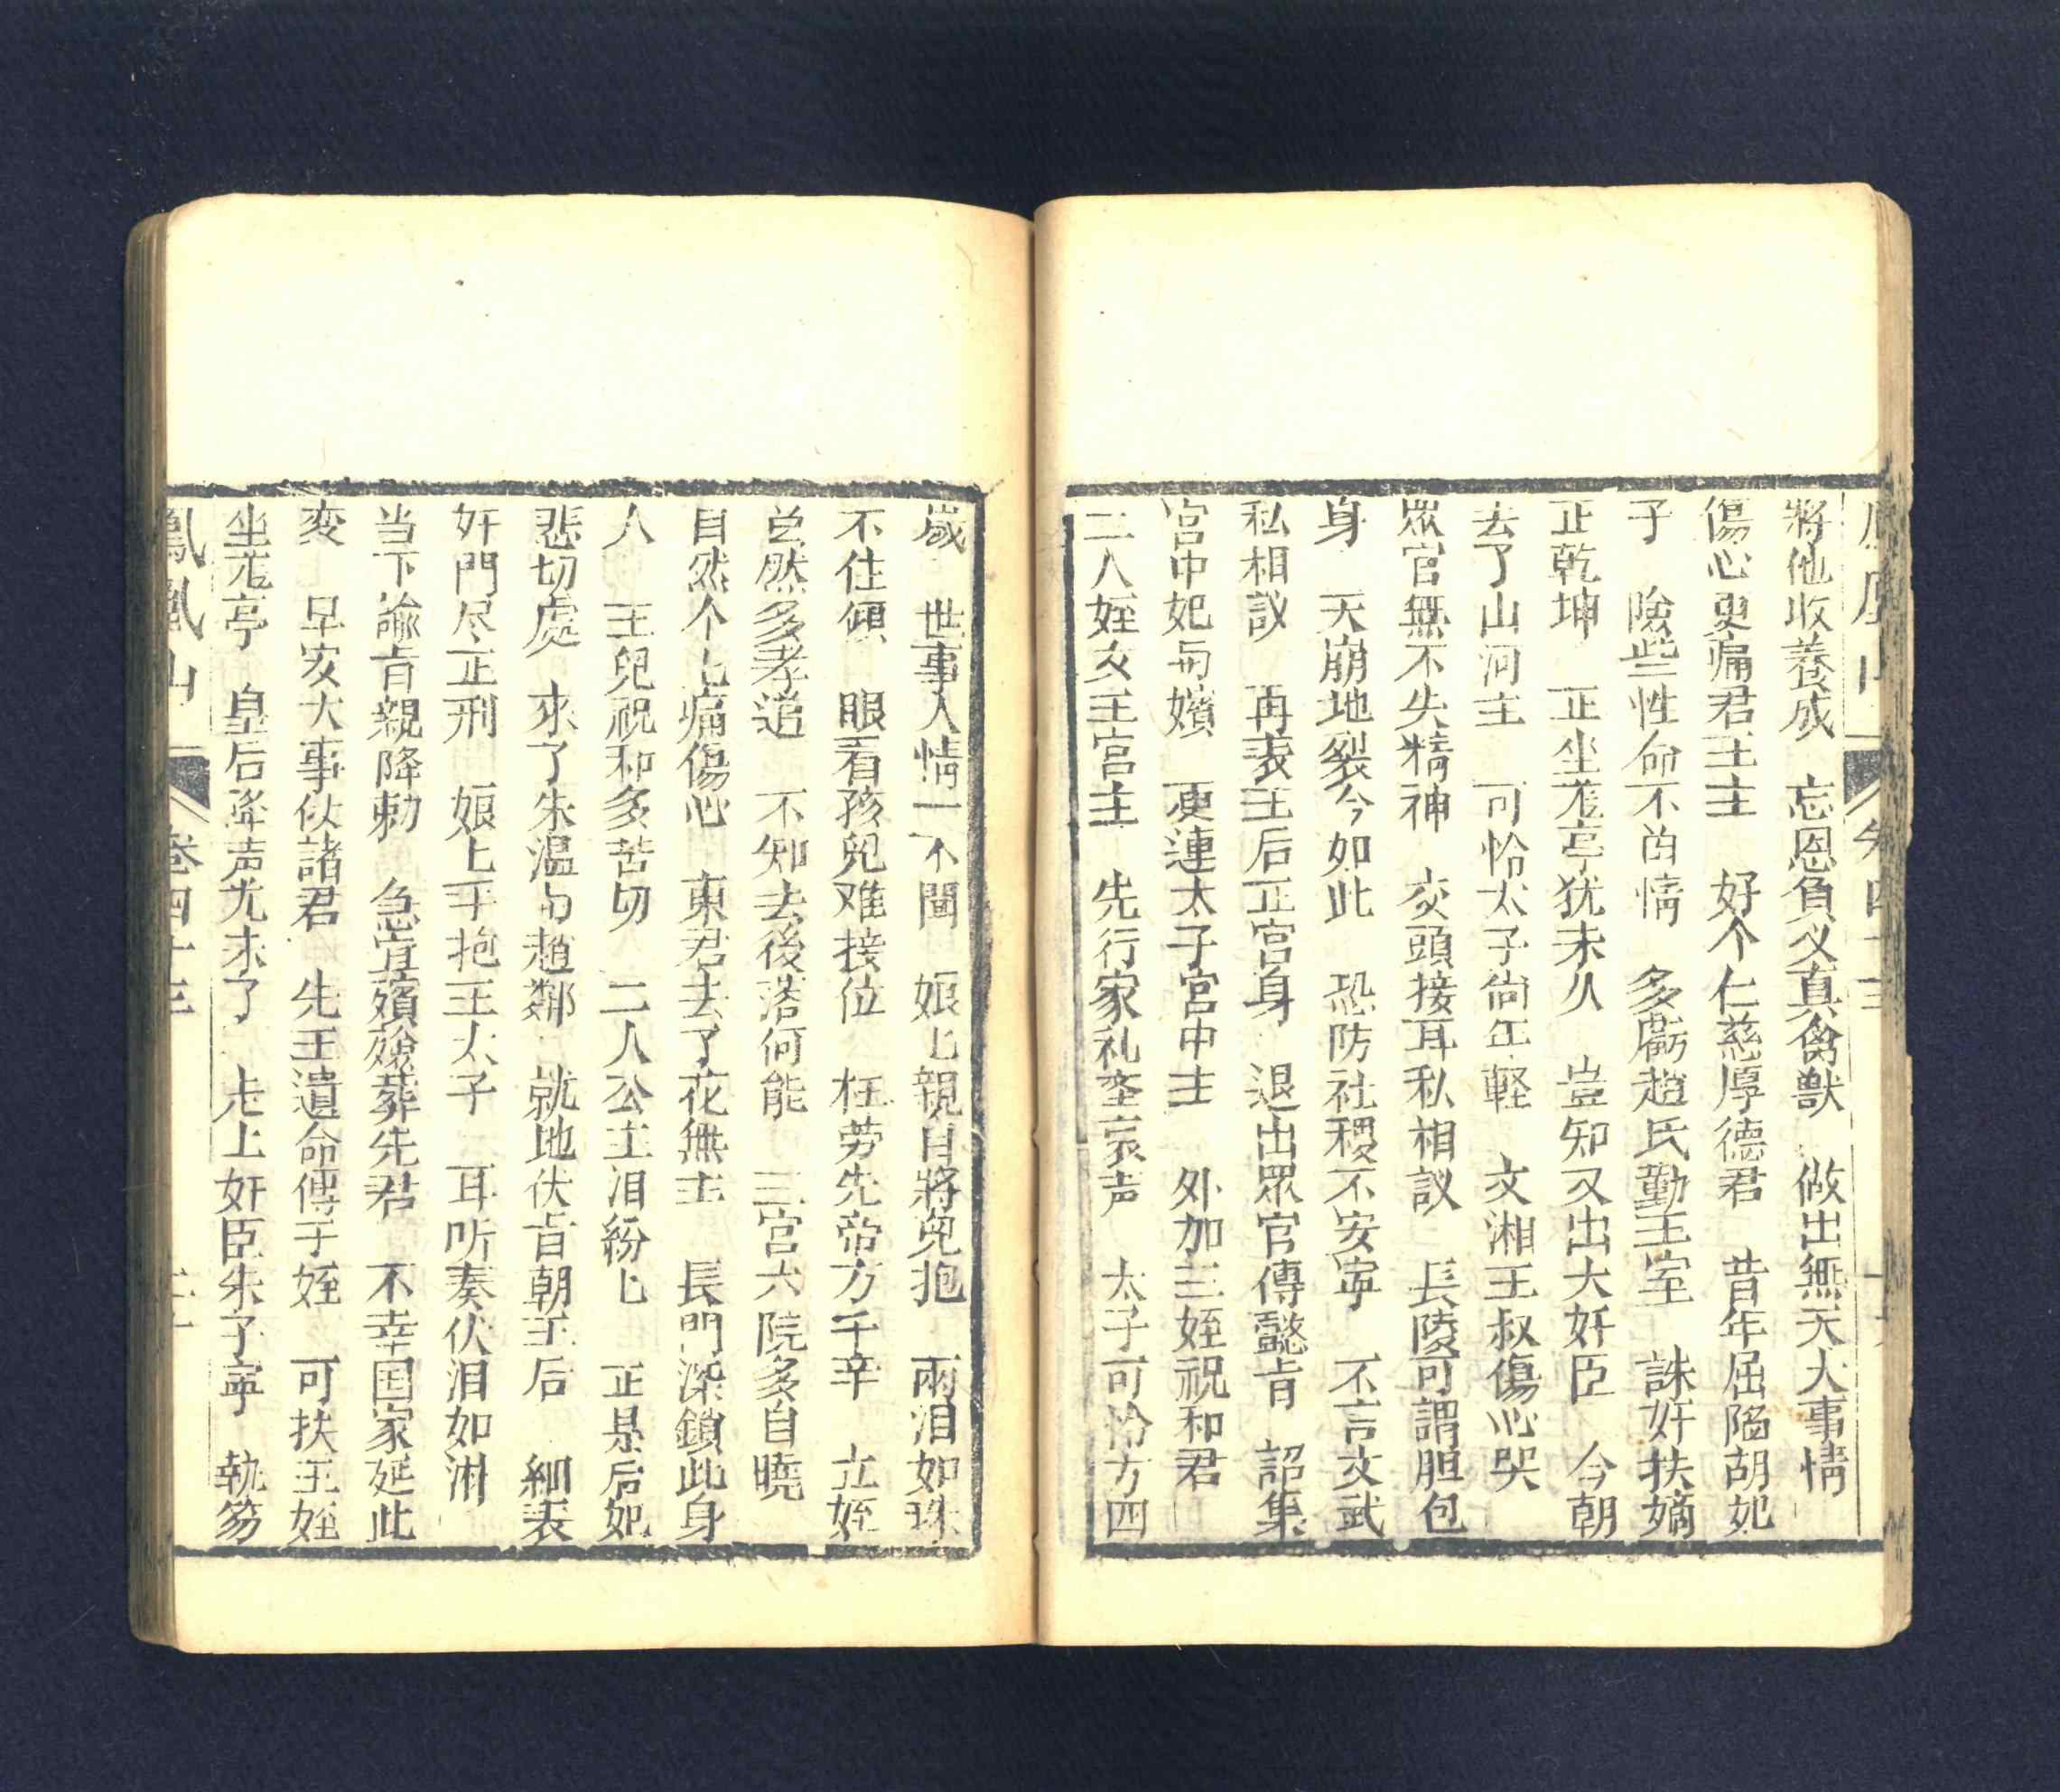 將他收養成　忘恩負义真禽獣　做出無天大事情
傷心更痛君王主　好个仁慈厚德君　昔年屈陷胡妃
子　險些性命不畄情　多虧趙氏勤王室　誅奸扶嫡
正乾坤　正坐竜亭犹未久　豈知又出大奸臣　今朝
去了山河主　可怜太子尙年軽　文湘王叔傷心哭
眾官無不失精神　交頭接耳私相議　長陵可謂胆包
身　天崩地裂今如此　恐防社稷不安寧　不言文武
私相議　再表王后正宮身　退出眾官傳懿旨　詔集
宮中妃與嬪　更連太子宮中主　外加三姪祝和君
二人姪女王宮主　先行家礼奎哀声　太子可怜方四
嵗　世事人情一不聞　娘匕親自將兒抱　兩泪如珠
不住傾　眼看孩兒难接位　枉劳先帝方千辛　立姪
总然多孝道　不知去後落何能　三宮六院多自曉
自然个匕痛傷心　東君去了花無主　長門深鎖此身
人　王兒祝和多苦切　二人公主泪紛匕　正是后妃
悲切處　來了朱温与趙鄰　就地伏旨朝王后　細表
奸門尽正刑　娘匕手抱王太子　耳听奏伏泪如淋
当下諭旨親降勅　急宜殯殮葬先君　不幸国家延此
变　早安大事伏諸君　先王遺命傳于姪　可扶王姪
坐竜亭　皇后降声尤未了　走上奸臣朱子寧　執笏
鳳凰山　卷四十三